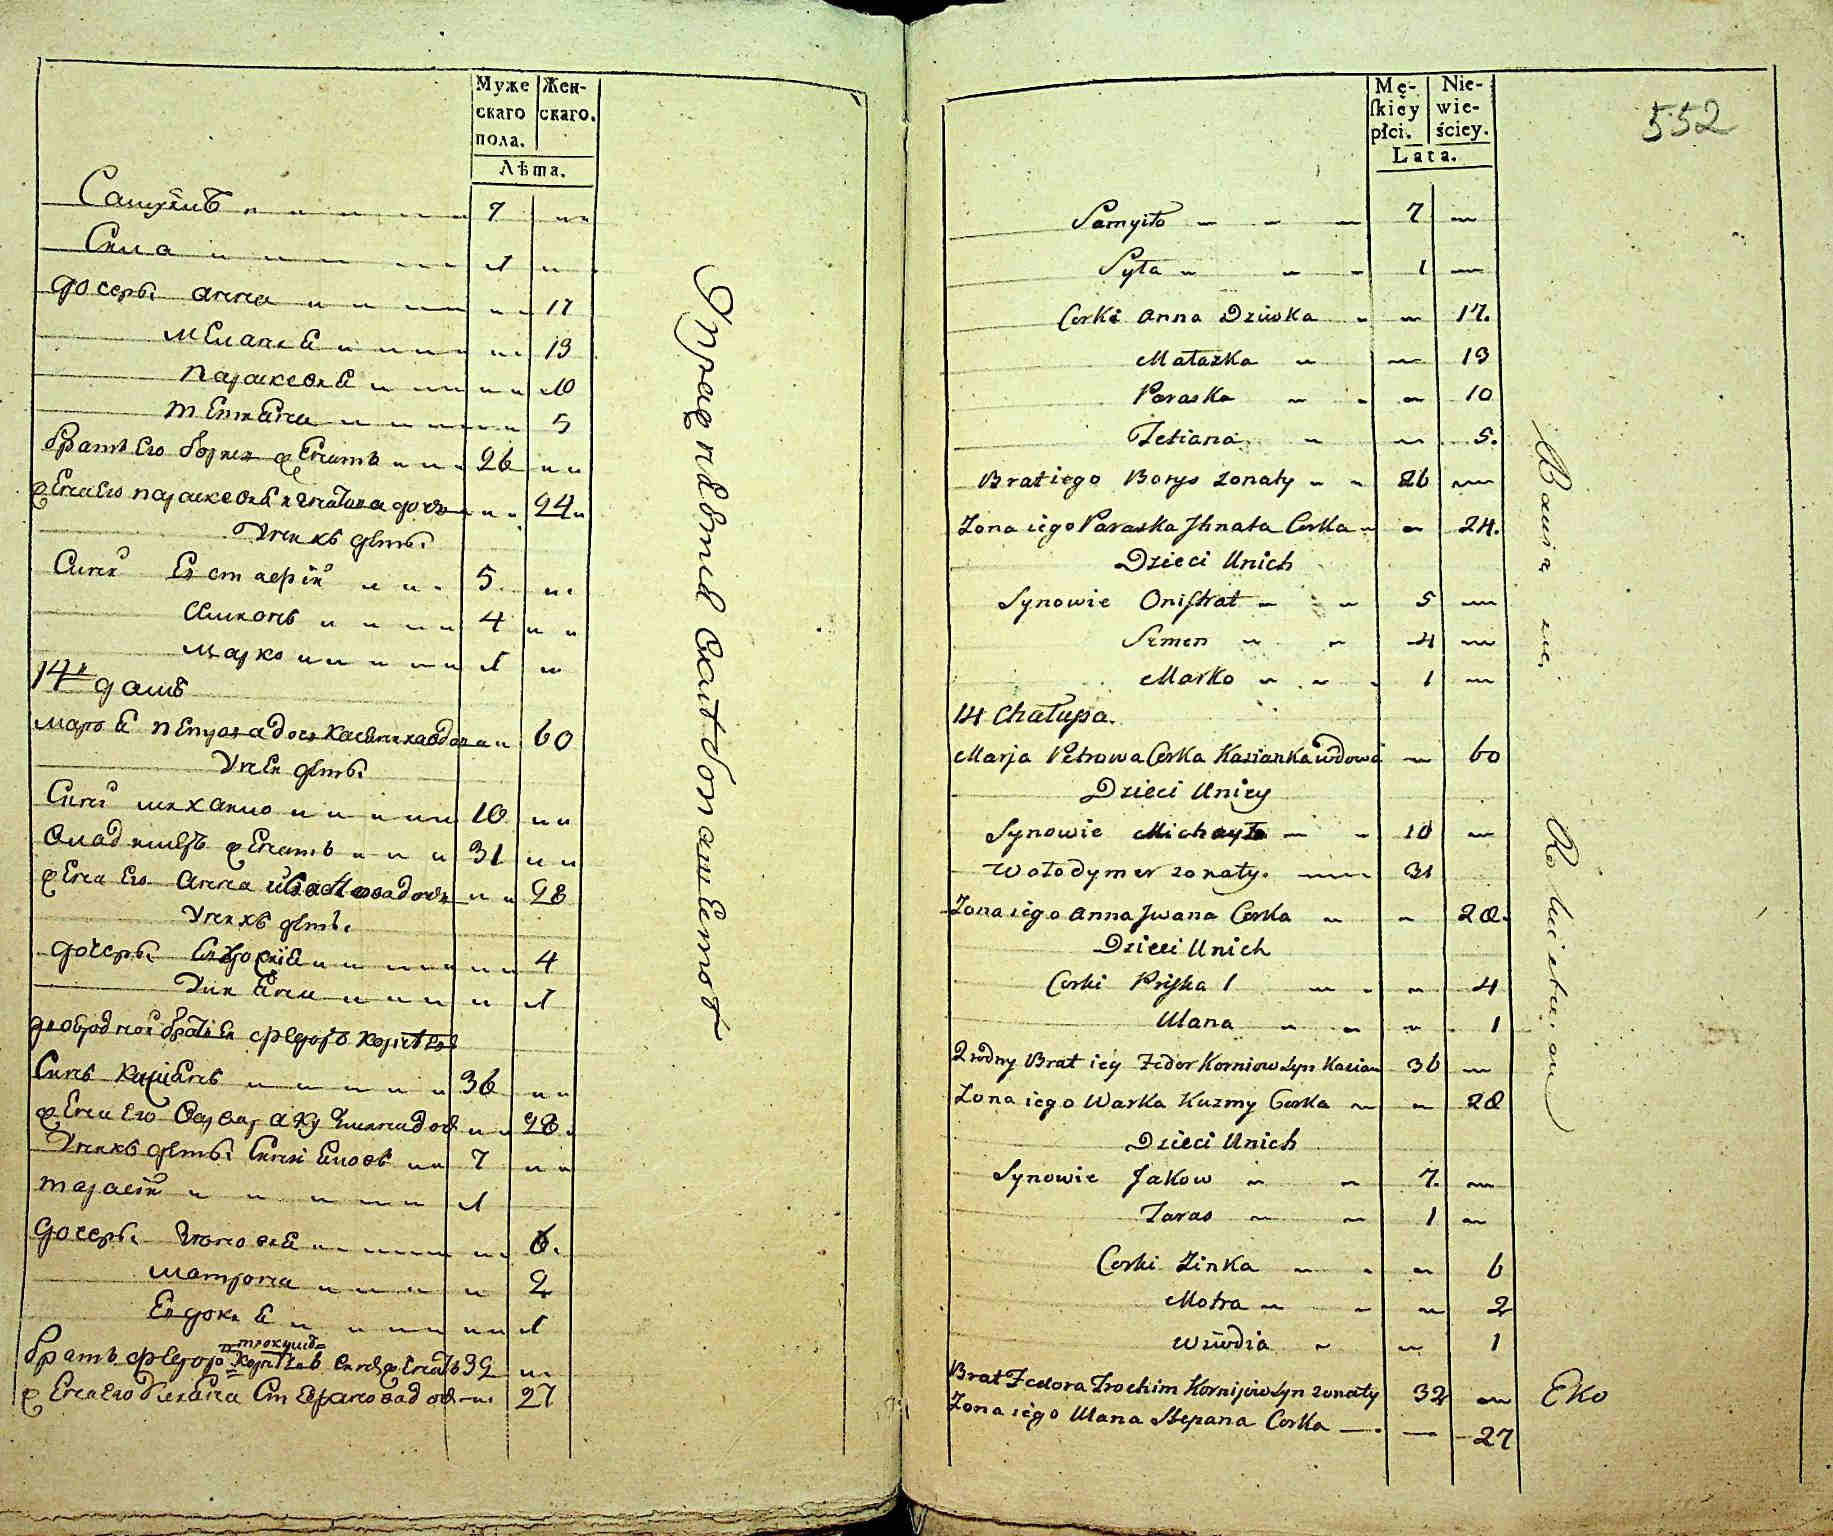 Муже
скаго
пола.
Жен-
скаго.
Лѣта.
Самуилъ 7
Сила 1
дочерь: анна 17
меланія 13
параскевія 10
тетіана 5
братъ его борисъ женатъ 26
жена его параскевія игнатова дочь 24
У нихъ дети:
Сыны Евстафій 5
Симонъ 4
марко 1
14 домъ
марія петрова дочь вдова 60
У нея дети:
Сыны михаило 10
владимеръ женатъ 31
жена его анна иванова дочь 28
У нихъ дети:
дочерь: 4
Уліяна 1
двоюродной братъ ея федоръ корніевъ
Сынъ 36
жена его варвара кузмина дочь 28
У нихъ дети: Сыны яковъ 7
тарасій 1
дочерь: 6
матрона 2
Евдокія 1
трохимъ
братъ федора корніевъ сынъ женатъ 32
жена его Уліяна Степанова дочь 27
Mę-
ſkiéy
płci.
Nie-
wie-
ściey.
Lata.
552
Samyiło 7
Syła 1
Corki Anna Dziwka 17.
Małaszka 13
Paraska 10
Tetiana 5.
Brat iego Borys zonaty 26
Zona iego Paraska Ihnata Corka 24.
Dzieci Unich
Synowie Oniſtrat 5
Semen 4
Marko 1
14 Chałupa.
Marja Petrowa Corka Kasianka wdowa 60
Dzieci Unicy
Synowie Michayło 10
Wołodymer zonaty. 31
Zona iego Anna Iwana Corka 28.
Dzieci Unich
Corki Priſka 4
Ulana 1
2 rodny Brat iey Fedor Korniow Syn Kasian 36
Zona iego Warka Kuzmy Corka 28
Dzieci Unich
Synowie Jakow 7.
Taras 1
Corki Zinka 6
Motra 2
Wiwdia 1
Brat Fedora Trochim Kornijow Syn zonaty 32
Zona iego Ulana Stepana Corka 27
Eko